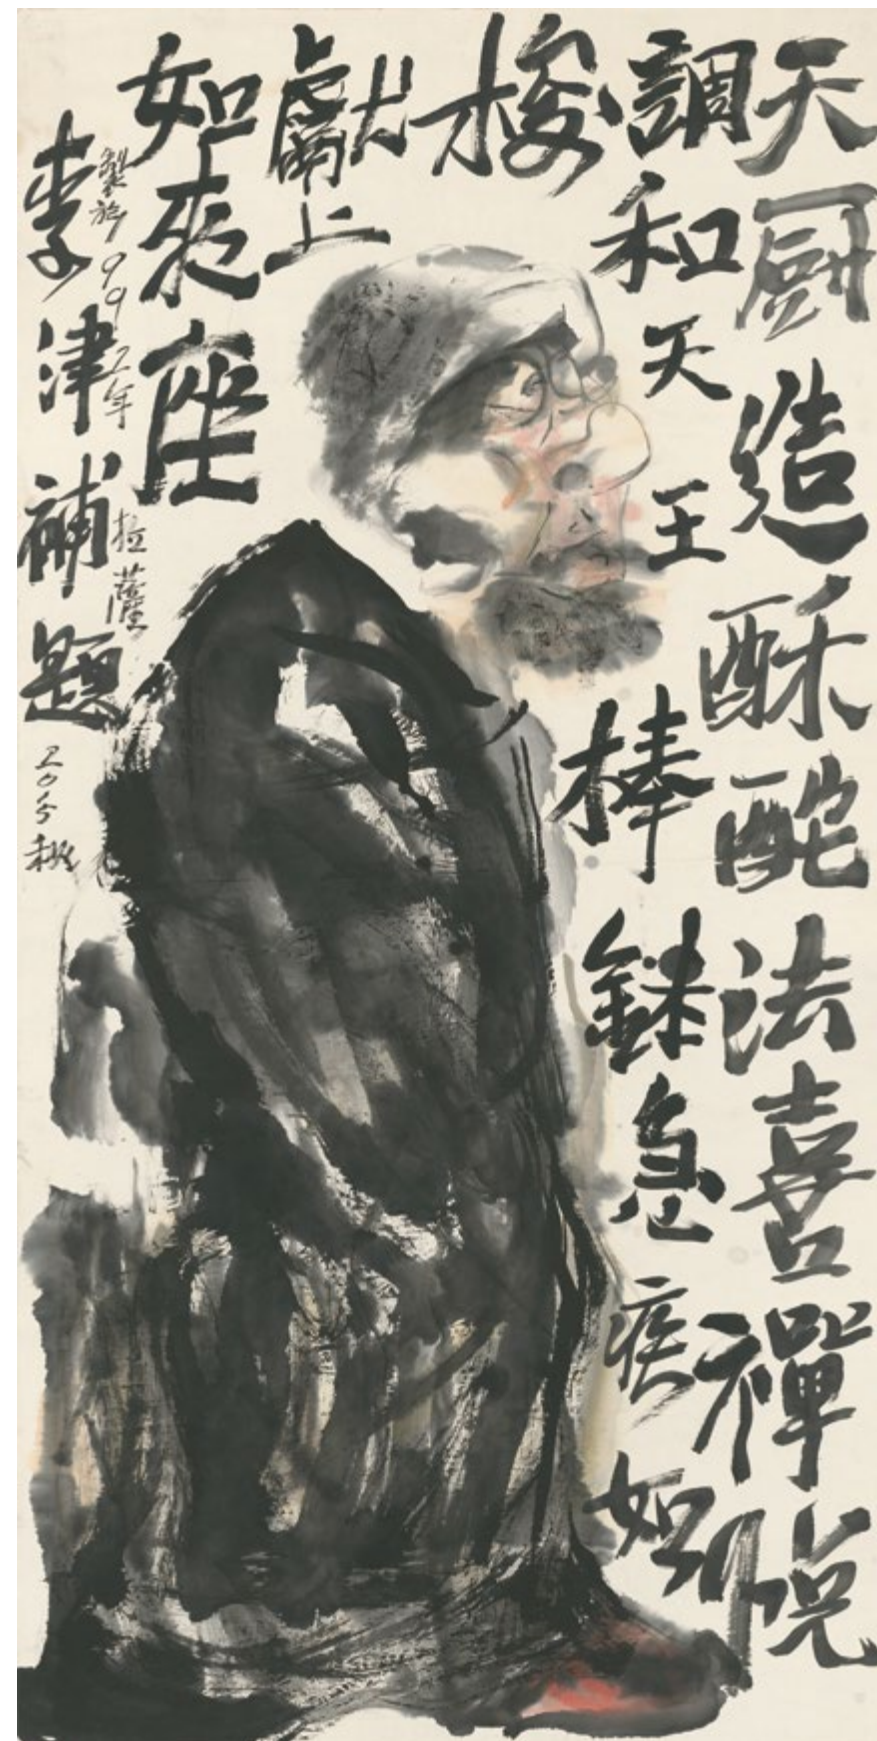 天厨造酥酡法喜禪悦
調和天王棒鉢急疾如
梭
獻上
如来座
製於1992年拉薩
李津補題 2005 秋